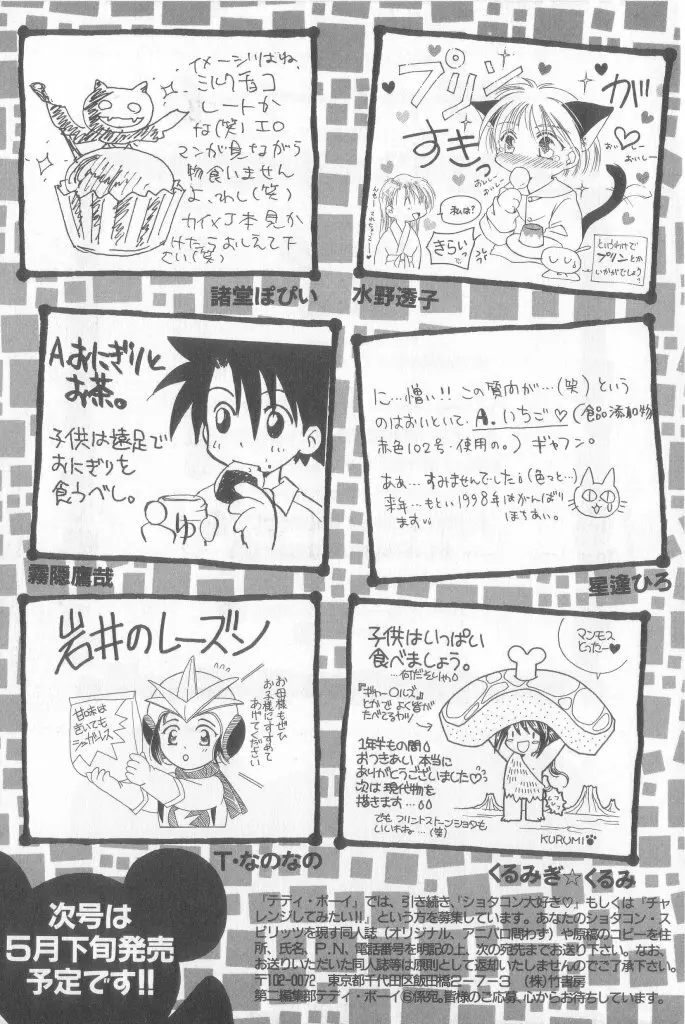 イメージ的ばね、
ミルクチョコ
レートか
な(笑)エロ
マンガ見ながら
物食いません
よ、わし(笑)
カイ×J本見か
けたらおしえて下
さい(笑)
諸堂ぽぴい
プリンが
すきっ
おいしー
おいしー
おいしー
おいしー
私は?
きらいっ
というわけで
プリンとか
いかがでしょう?
水野透子
Aおにぎりと
お茶。
子供は遠足で
おにぎりを
食うべし。
ゆ
霧隠鷹哉
に…憎い!!この質問が…(笑)という
のはおいといて、A.いちご♡(食品添加物
赤色102号・使用の。)ギャフン。
ああ…すみませんでした¡(色っと…)
来年…もとい1998年はがんばり
ます
ほちあい。
星逢ひろ
岩井のレーズン
お母様もぜひ
お子様にすすめて
あげてください
甘味は
きいても
シュガーレス
T・なのなの
子供はいっぱい
食べましょう。
…何だそりゃ
『ギャー〇ルズ』
とかでよく皆が
たべてるカツ
マンモス
とったー♥
1年半もの間
おつきあい本当に
ありがとうございました♡
次は現代物を
描きます…
でもフリントストーンショタも
いいかもね…(笑)
KURUMI
くるみぎ☆くるみ
次号は
5月下旬発売
予定です!!
「テディ・ボーイ」では、引き続き、「ショタコン大好き♡」もしくは「チャ
レンジしてみたい!!」という方を募集しています。あなたのショタコン・ス
ピリッツを現す同人誌(オリジナル、アニパロ問わず)や原稿のコピーを住
所、氏名、P.N、電話番号を明記の上、次の宛先までお送り下さい。なお、
お送りいただいた同人誌等は原則として返却いたしませんのでご了承下さい。
〒102-0072 東京都千代田区飯田橋2-7-3 (株)竹書房
第二編集部テディ・ボーイ⑥係宛。皆様のご応募、心からお待ちしています。